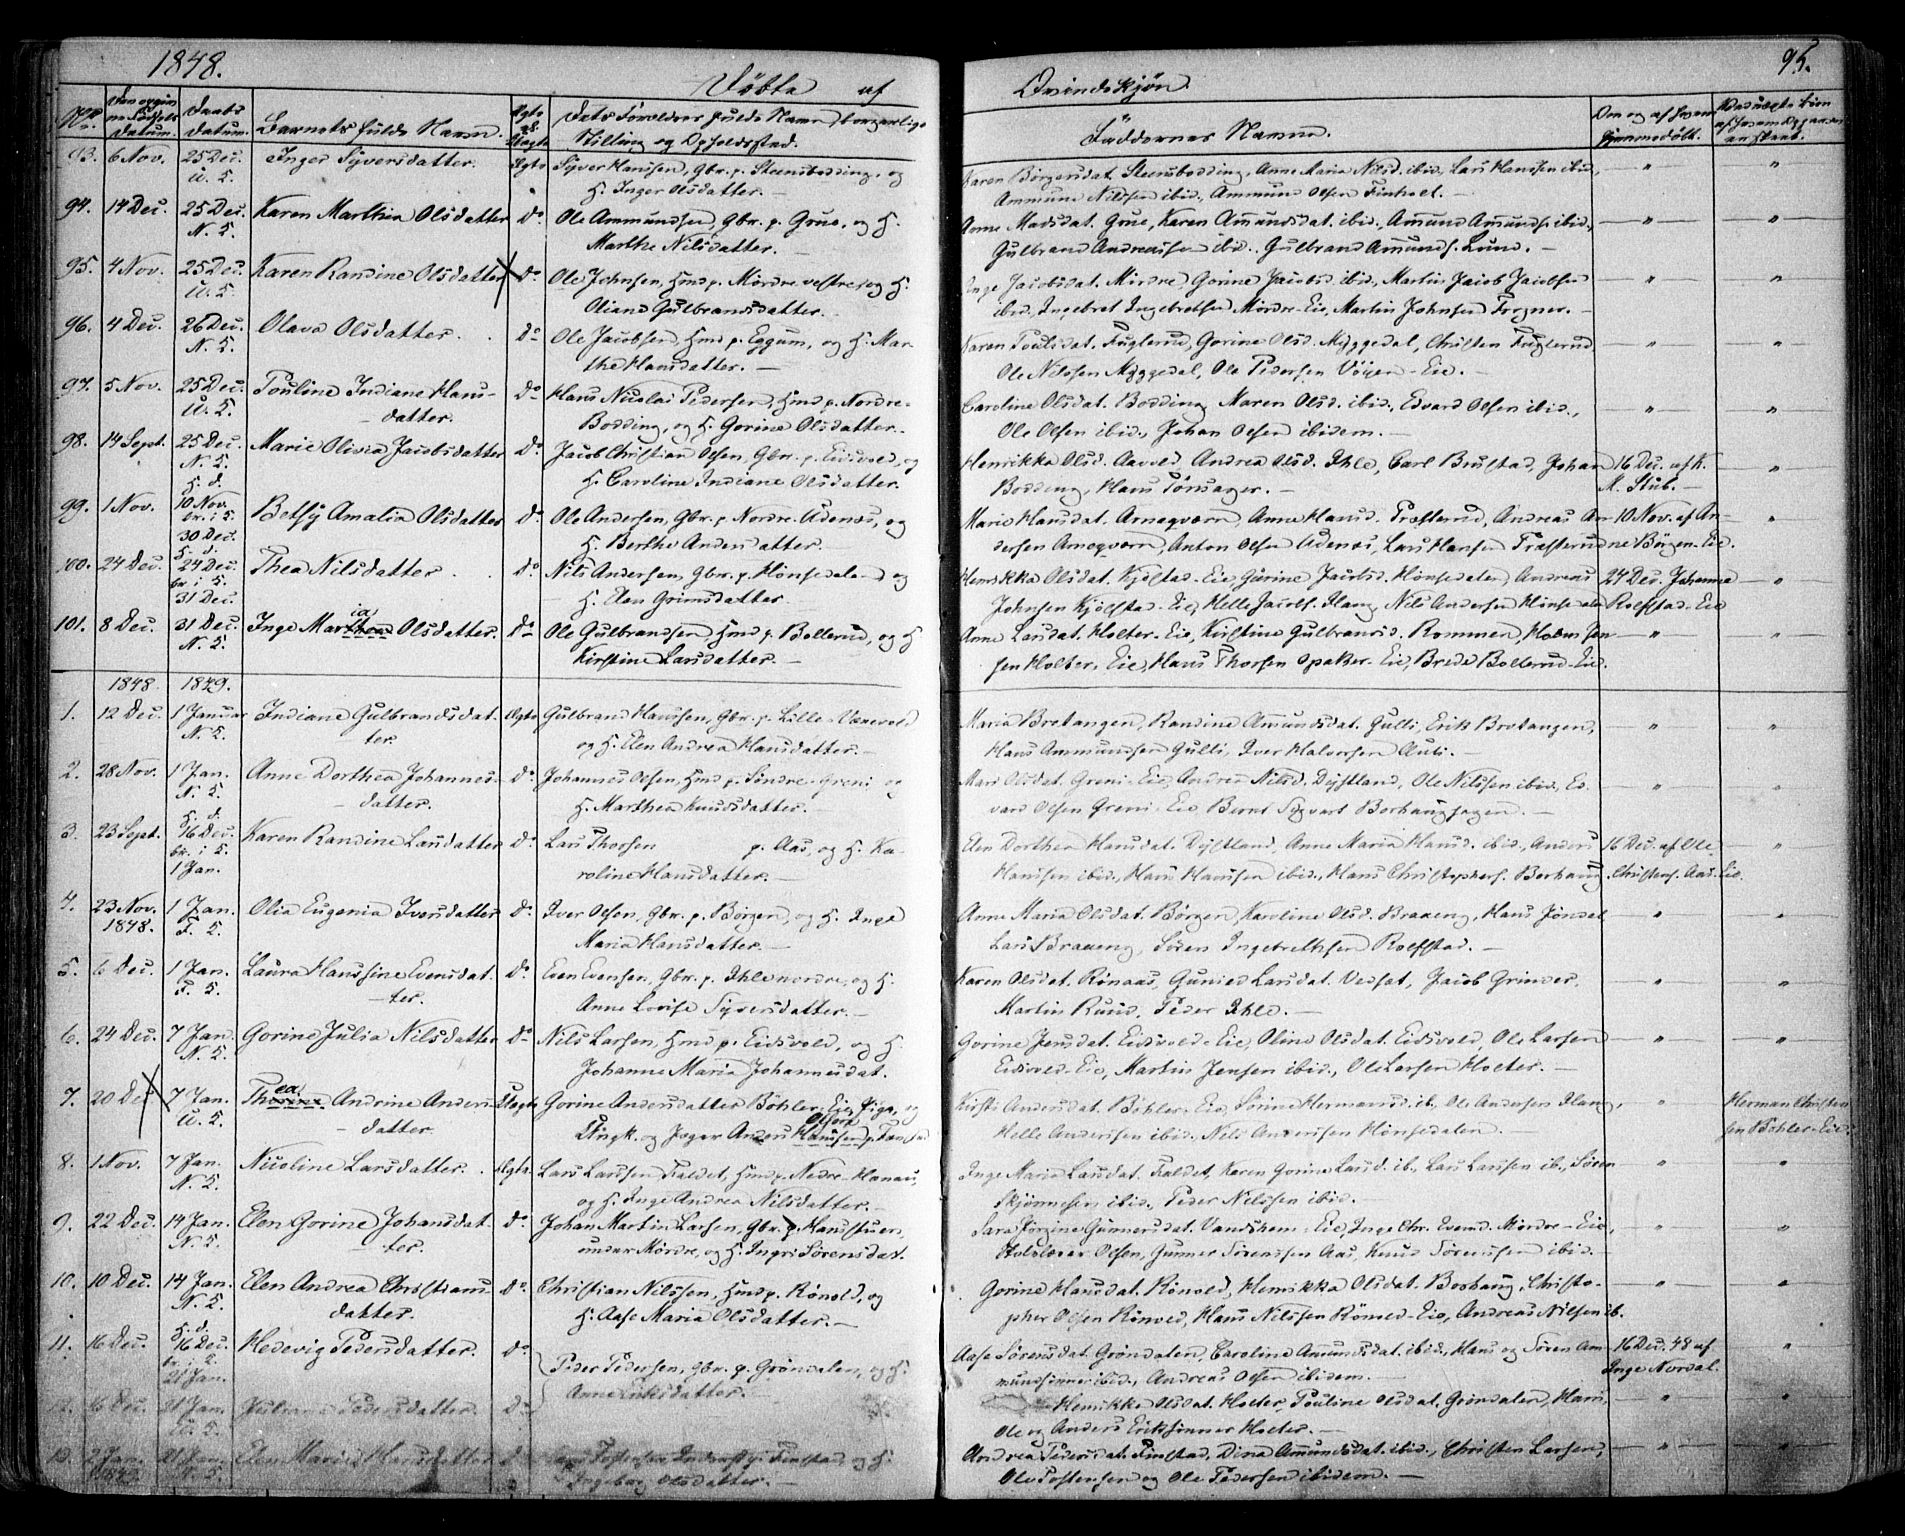 1848.
95.
Döbte af
Qvindekjøn.
No.
Datum.
Daabs Datum.
Barnets fulde Navn.
Ægte
Uægte
Dets Forældres fulde Navn, borgerlige
Stilling og Opholdssted.
Faddernes Navne.
93. 6 Nov. 25 Dec. Inger Syversdatter. Ægte Syver Hansen, Gbr. p. Steensbødding, og
U. K. K. Inger Olsdatter. —
Karen Börgersdat. Steensbødding, Anne Maria Nilsd. ibid., Lars Hansen ibid.,
Ammund Nilsen ibid., Ammund Olsen Finholt. —
94. 14 Dec. 25 Dec. Karen Marthea Olsdatter Do. Ole Ammundsen, Gbr. p. Grue, og K.
N. K. Marthe Nilsdatter. —
Anne Madsdat. Grue, Karen Amundsdat. ibid., Amund Amunds. ibid.,
Gulbrand Andreassen ibid., Gulbrand Amunds. Lund. —
95. 4 Nov. 25 Dec. Karen Randine Olsdatter Do. Ole Johnsen, Hmd p. Mördre vestre, og K.
U. K. Oliane Gulbrandsdatter. —
Inge Jacobsdat. Mördre, Gorine Jacobsd. ibid., Martin Jacob Jacobsen
ibid., Ingebret Ingebretsen Mördre-Eie, Martin Johnsen Frogner. —
96. 4 Dec. 26 Dec. Olava Olsdatter. Do. Ole Jacobsen, Hmd p. Eggum, og K. Mar-
N. K. the Hansdatter. —
Karen Poulsdat. Fuglerud, Gorine Olsd. Myggedal, Christen Fuglerud
Ole Nilssen Myggedal, Ole Pedersen Vöyen-Eie. —
97. 5 Nov. 25 Dec. Pouline Indiane Hans- Do. Hans Nicolai Pedersen, Hmd p. Nordre-
U. K. datter. Bødding, og K. Gorine Olsdatter. —
Caroline Olsdat. Bødding, Maren Olsd. ibid., Edvard Olsen ibid.,
Ole Olsen ibid., Johan Olsen ibidem. —
98. 14 Sept. 25 Dec. Marie Olivia Jacobsdatter Do. Jacob Christian Olsen, Gbr. p. Eidsvold, og
N. K. K. Caroline Indiane Olsdatter.
Henrikka Olsd. Aavold, Andrea Olsd. Ihle, Carl Brustad, Johan 16 Dec. af K.
Bødding, Hans Tönsager. — M. Stub. —
99. 1 Nov. H. d. 10 Nov. Betsy Amalia Olsdatter Do. Ole Andersen, Gbr. p. Nordre-Udenæs, og
br. i K. 30 Dec. K. Berthe Andersdatter. —
Marie Hansdat. Arneqværn, Anne Hansd. Træfterud, Andreas An- 10 Nov. af An-
dersen Arneqværn, Anton Olsen Udenæs, Lars Hansen Træfterud ne Börgen-Eie.
100. 24 Dec. H. d. 24 Dec. Thea Nilsdatter. Do. Nils Andersen, Gbr. p. Hönsedalen og
br. i K. 31 Dec. K. Elen Grimsdatter
Henrikka Olsdat. Kjölstad-Eie, Gurine Jacobsd. Hönsedalen, Andreas 24 Dec. Johanne
Johnsen Kjölstad-Eie, Helle Jacobs. Ilang, Nils Andersen Hönsedalen Rolfstad-Eie
101. 8 Dec. 31 Dec. Inge Marthea ia Olsdatter. Do. Ole Gulbrandsen, Hmd p. Bollerud, og K
N. K. Kirstine Larsdatter. —
Anne Larsdat. Holter-Eie, Kirstine Gulbransd. Rommen,
sen Holter-Eie, Hans Thorsen Opaker-Eie, Brede Bollerud-Eie.
1848. 1849.
1. 12 Dec. 1 Januar Indiane Gulbrandsdat- Ægte Gulbrand Hanssen, Gbr. p. Lille-Vænevold
N. K. ter. og K. Elen Andrea Hansdatter. —
Maria Bretangen, Randine Amundsdat. Gulli, Erik Bretangen,
Hans Ammundsen Gulli, Iver Halvorsen Auli. —
2. 28 Nov. 1 Jan. Anne Dorthea Johannes- Do. Johannes Olsen, Hmd p. Söndre-Greni og
N. K. datter. K. Marthea Knudsdatter. —
Mari Olsdat. Greni-Eie, Andrea Nilsd. Dystland, Ole Nilssen ibid., Ed-
vard Olsen Greni-Eie, Bernt Syvert Borhaughagen. —
3. 23 Sept. H. d. 16 Dec. Karen Randine Larsdatter Do. Lars Thorsen p. Aas, og K. Ka-
br. i K. 1 Jan. roline Hansdatter. —
Elen Dorthea Hansdat. Dystland, Anne Maria Hansd. ibid., Anders 16 Dec. af Ole
Hanssen ibid., Hans Hanssen ibid., Hans Christophers. Borhaug Christens. Aas-Eie.
4. 23 Nov. 1848. 1 Jan. Olia Eugenia Iversdatter Do. Iver Olsen, Gbr. p. Börgen, og K. Inge
F. K. Maria Hansdatter. —
Anne Maria Olsdat. Börgen, Karoline Olsd. Braaeng, Hans Jöndal
Lars Braaeng, Sören Ingebrethsen Rolfstad. —
5. 6 Dec. 1 Jan. Laura Hanssine Evensdat- Do. Even Evensen, Gbr. p. Ihle nordre, og K.
F. K. ter. Anne Lovise Syversdatter. —
Karen Olsdat. Rönaas, Gunild Larsdat. Vedset, Jacob Grinder,
Martin Ruud, Peder Ihle. —
6. 24 Dec. 7 Jan. Gorine Julia Nilsdatter Do. Nils Larsen, Hmd p. Eidsvold, og K.
N. K. Johanne Maria Johannesdat.
Gorine Jensdat. Eidsvold-Eie, Oline Olsdat. Eidsvold, Ole Larsen
Eidsvold-Eie, Martin Jensen ibid., Ole Larsen Holter. —
7. 20 Dec 7 Jan. Thorine ea Andrine Anders- Uægte Gorine Andersdatter Böhler-Eie, Pige, og
U. K. datter Ungk. og Jæger Anders Hanssen Olsen p.
Kirsti Andersdat. Böhler-Eie, Sörine Hermansd. ib., Ole Andersen Ilang, Herman Christen
Helle Anderssen ibid., Nils Anderssen Hönsedalen. sen Böhler-Eie.
8. 1 Nov. 7 Jan. Nicoline Larsdatter. Ægte. Lars Larssen Faldet, Hmd p. Nedre-Hanaus,
N. K. og K. Inge Andrea Nilsdatter. —
Inge Maria Larsdat. Faldet, Karen Gorine Larsd. ib., Lars Larssen ib., Sören
Skjönnesen ibid., Peder Nilssen ibid.
9. 22 Dec. 14 Jan. Elen Gorine Johansdat- Do. Johan Martin Larsen, Gbr. p. Hanstuen,
N. K. ter. under Mördre, og K. Ingri Sörensdat.
Sara Jörgine Gunnersdat. Vandshem-Eie, Inge Chr. Evensd. Mördre-Eie,
Olsen, Gunner Sörenssen Aas, Knud Sörenssen ibid. —
10. 10 Dec. 14 Jan. Elen Andrea Christians- Do. Christian Nilssen, Hmd p. Rönold, og
N. K. datter. K. Aase Maria Olsdatter. —
Gorine Hansdat. Rönold, Henrikka Olsdat. Borhaug, Christo-
pher Olsen Rönold, Hans Nilssen Rönold-Eie, Andreas Nilsen ib.
11. 16 Dec. H. d. 16 Dec. Hedevig Pedersdatter. Do. Peder Pedersen, Gbr. p. Gröndalen, og K.
br. i K. 21 Jan. Anne Eriksdatter. —
Aase Sörensdat. Gröndalen, Caroline Amundsdat. ibid., Hans og Sören Am- 16 Dec. 48 af
mundsönner ibid., Andreas Olsen ibidem. — Inge Nordal.
12. 16 Dec. 21 Jan. Pedersdatter. Do.
U. K.
Henrikka Olsdat. Holter, Pouline Olsdat. Gröndalen, Hans,
Ole og Anders Eriksönner Holter. —
13. 2 Jan. 1849. 21 Jan. Elen Maria Larsdatter Do.
N. K. Postensen Inderst p. Finstad, og K.
Ingeborg Olsdatter. —
Andrea Pedersdat. Finstad, Dina Amundsdat. ibid., Christen Larsen,
Ole Postensen og Ole Pedersen ibidem. —